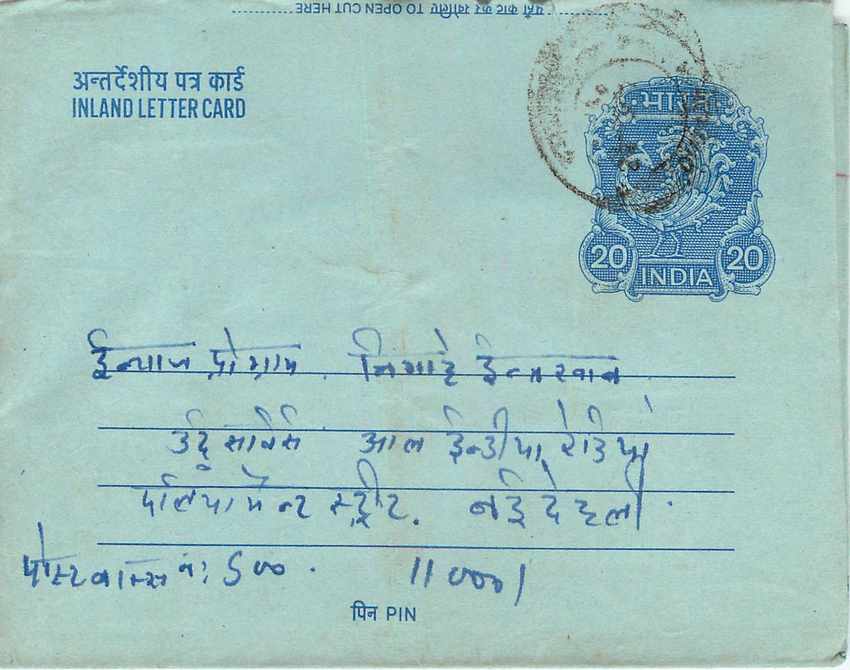 यहाँ काट कर खोलिए TO OPEN CUT HERE
अन्तर्देशीय पत्र कार्ड
INLAND LETTER CARD
भारत
20 INDIA 20
ईनाज प्रोग्राम. निगाहे ईन्तखाब
उर्दू सर्विस आल ईन्डीया रेडियो
पार्लियामेन्ट स्ट्रीट. नई देहली.
पोस्ट बाक्स नं: 500. 110001
पिन PIN